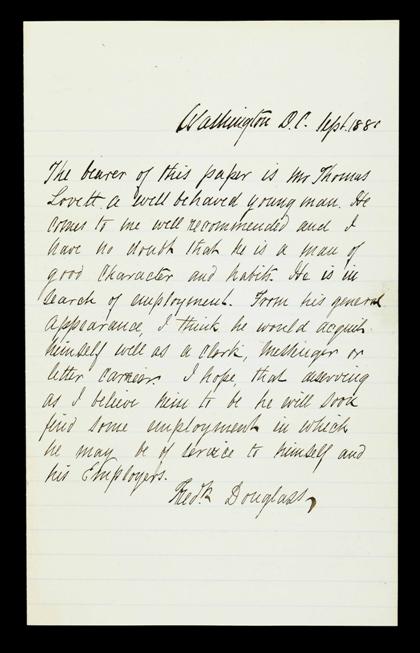 Washington D.C. Sept. 188
The bearer of this paper is Mr Thomas
Lovett. a well behaved young man. He
comes to me well recommended and I
have no doubt that he is a man of
good character and habits. He is in
Search of employment. From his general
appearance, I think he would acquit
himself well as a clerk, messinger or
letter carrier. I hope, that deserving
as I believe him to be he will soon
find some employment in which
he may be of service to himself and
his Employers.
Fredk Douglass,